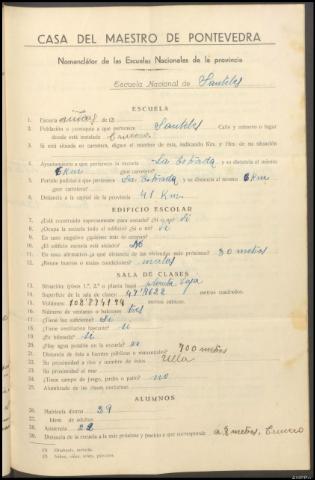 CASA DEL MAESTRO DE PONTEVEDRA
Nomenclátor de las Escuelas Nacionales de la provincia
Escuela Nacional de Santeles
ESCUELA
1. Escuela niños de
2. Población o parroquia a que pertenece Santeles Calle y número o lugar
donde está instalada Crucero
3. Si está situada en carretera, dígase el nombre de ésta, indicando Km. y Hm. de su situación
4. Ayuntamiento a que pertenece la escuela La Estrada y su distancia al mismo
6 Km (por carretera)
5. Partido judicial a que pertenece La Estrada, y su distancia al mismo 6 Km
(por carretera)
6. Distancia a la capital de la provincia 41 Km.
EDIFICIO ESCOLAR
7. ¿Está construido expresamente para escuela? ¿Sí o no? Si
8. ¿Ocupa la escuela todo el edificio? ¿Sí o no? si
9. En caso negativo ¿quiénes más lo ocupan?
10. ¿El edificio escuela está aislado? No
11. En caso afirmativo ¿a qué distancia de las viviendas más próximas? 30 metros
12. ¿Reúne buenas o malas condiciones? malas
SALA DE CLASES
13. Situación (pisos 1.º, 2.º o planta baja) planta baja
14. Superficie de la sala de clases: 47'8622 metros cuadrados.
15. Volumen: metros cúbicos.
16. Número de ventanas o balcones tres
17. ¿Tiene luz suficiente? Si
18. ¿Tiene ventilación bastante? si
19. ¿Es húmeda? si
20. ¿Hay agua potable en la escuela? no
21. Distancia de ésta a fuentes públicas o manantiales? 700 metros
22. Su proximidad a ríos y nombre de éstos Ulla
23. Su proximidad al mar
24. ¿Tiene campo de juego, jardín o patio? no
25. Alumbrado de las clases nocturnas
ALUMNOS
26. Matrícula diurna 39
27. Idem de adultos
28. Asistencia 22
29. Distancia de la escuela a la más próxima y pueblo a que corresponde metros, Crucero
(1) Graduada, unitaria.
(2) Niños, niñas, mixta, párvulos.